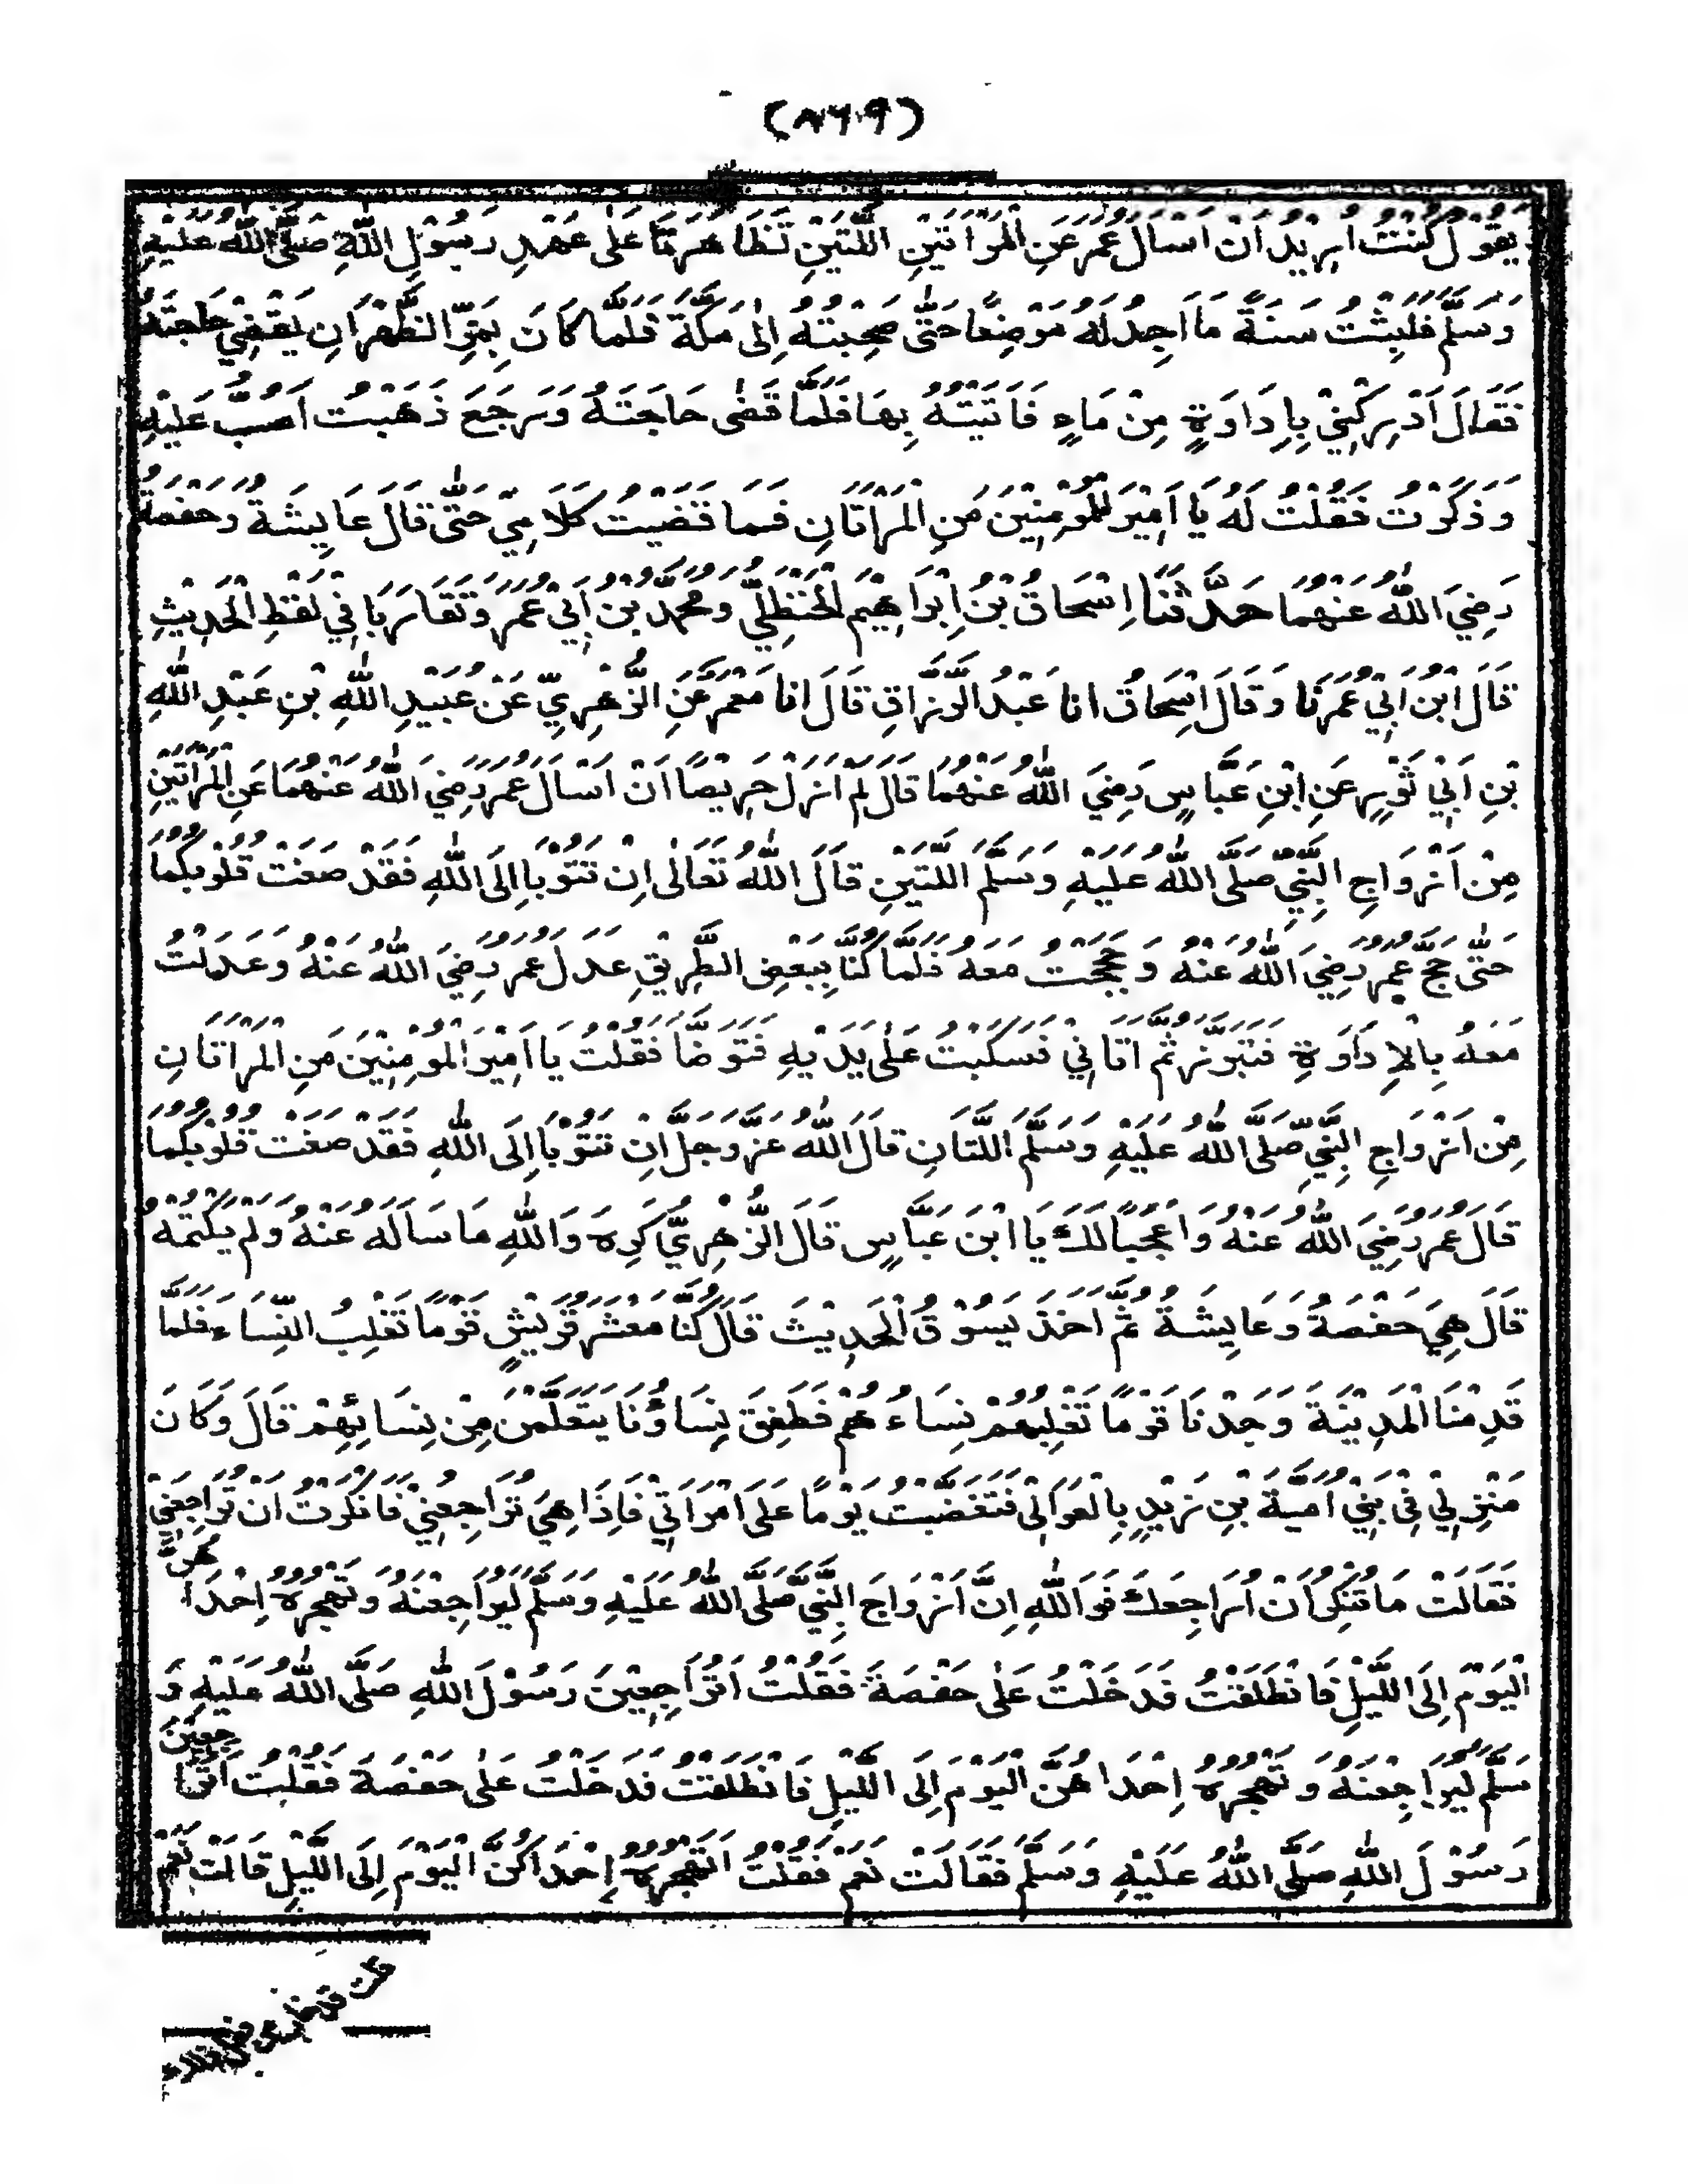 (٨٦٩)
يَقُوْلُ كُنْتُ اُرِيْدُ اَنْ اَسْاَلَ عُمَرَ عَنِ الْمَرْاَتَيْنِ اللَّتَيْنِ تَظَاهَرَتَا عَلٰى عَهْدِ رَسُوْلِ اللّٰهِ صَلَّى اللّٰهُ عَلَيْهِ
وَسَلَّمَ فَلَبِثْتُ سَنَةً مَا اَجِدُ لَهُ مَوْضِعًا حَتّٰى صَحِبْتُهُ اِلٰى مَكَّةَ فَلَمَّا كَانَ بِمَرِّ الظَّهْرَانِ يَقْضِيْ حَاجَتَهُ
فَقَالَ اَدْرِكْنِيْ بِاِدَاوَةٍ مِنْ مَاءٍ فَاَتَيْتُهُ بِهَا فَلَمَّا قَضٰى حَاجَتَهُ وَرَجَعَ ذَهَبْتُ اَصُبُّ عَلَيْهِ
وَذَكَرْتُ فَقُلْتُ لَهُ يَا اَمِيْرَ الْمُؤْمِنِيْنَ مَنِ الْمَرْاَتَانِ فَمَا قَضَيْتُ كَلَامِيْ حَتّٰى قَالَ عَايِشَةُ وَحَفْصَةُ
رَضِيَ اللّٰهُ عَنْهُمَا حَدَّثَنَا اِسْحَاقُ بْنُ اِبْرَاهِيْمَ الْحَنْظَلِيُّ وَمُحَمَّدُ بْنُ اَبِيْ عُمَرَ وَتَقَارَبَا فِيْ لَفْظِ الْحَدِيْثِ
قَالَ ابْنُ اَبِيْ عُمَرَ نَا وَقَالَ اِسْحَاقُ انا عَبْدُ الرَّزَّاقِ قَالَ انا مَعْمَرٌ عَنِ الزُّهْرِيِّ عَنْ عُبَيْدِ اللّٰهِ بْنِ عَبْدِ اللّٰهِ
بْنِ اَبِيْ ثَوْرٍ عَنِ ابْنِ عَبَّاسٍ رَضِيَ اللّٰهُ عَنْهُمَا قَالَ لَمْ اَزَلْ حَرِيْصًا اَنْ اَسْاَلَ عُمَرَ رَضِيَ اللّٰهُ عَنْهُمَا عَنِ الْمَرْاَتَيْنِ
مِنْ اَزْوَاجِ النَّبِيِّ صَلَّى اللّٰهُ عَلَيْهِ وَسَلَّمَ اللَّتَيْنِ قَالَ اللّٰهُ تَعَالٰى اِنْ تَتُوْبَا اِلَى اللّٰهِ فَقَدْ صَغَتْ قُلُوْبُكُمَا
حَتّٰى حَجَّ عُمَرُ رَضِيَ اللّٰهُ عَنْهُ وَحَجَجْتُ مَعَهُ فَلَمَّا كُنَّا بِبَعْضِ الطَّرِيْقِ عَدَلَ عُمَرُ رَضِيَ اللّٰهُ عَنْهُ وَعَدَلْتُ
مَعَهُ بِالْاِدَاوَةِ فَتَبَرَّزَ ثُمَّ اَتَانِيْ فَسَكَبْتُ عَلٰى يَدَيْهِ فَتَوَضَّا فَقُلْتُ يَا اَمِيْرَ الْمُؤْمِنِيْنَ مَنِ الْمَرْاَتَانِ
مِنْ اَزْوَاجِ النَّبِيِّ صَلَّى اللّٰهُ عَلَيْهِ وَسَلَّمَ اللَّتَانِ قَالَ اللّٰهُ عَزَّ وَجَلَّ اِنْ تَتُوْبَا اِلَى اللّٰهِ فَقَدْ صَغَتْ قُلُوْبُكُمَا
قَالَ عُمَرُ رَضِيَ اللّٰهُ عَنْهُ وَاعَجَبًا لَكَ يَا ابْنَ عَبَّاسٍ قَالَ الزُّهْرِيُّ كَرِهَ وَاللّٰهِ مَا سَاَلَهُ عَنْهُ وَلَمْ يَكْتُمْهُ
قَالَ هِيَ حَفْصَةُ وَعَايِشَةُ ثُمَّ اَخَذَ يَسُوْقُ الْحَدِيْثَ قَالَ كُنَّا مَعْشَرَ قُرَيْشٍ قَوْمًا نَغْلِبُ النِّسَاءَ فَلَمَّا
قَدِمْنَا الْمَدِيْنَةَ وَجَدْنَا قَوْمًا تَغْلِبُهُمْ نِسَاءُهُمْ فَطَفِقَ نِسَاؤُنَا يَتَعَلَّمْنَ مِنْ نِسَائِهِمْ قَالَ وَكَانَ
مَنْزِلِيْ فِيْ بَنِيْ اُمَيَّةَ بْنِ زَيْدٍ بِالْعَوَالِيْ فَتَغَضَّبْتُ يَوْمًا عَلَى امْرَاَتِيْ فَاِذَا هِيَ تُرَاجِعُنِيْ فَاَنْكَرْتُ اَنْ تُرَاجِعَنِيْ
فَقَالَتْ مَا تُنْكِرُ اَنْ اُرَاجِعَكَ فَوَاللّٰهِ اِنَّ اَزْوَاجَ النَّبِيِّ صَلَّى اللّٰهُ عَلَيْهِ وَسَلَّمَ لَيُرَاجِعْنَهُ وَتَهْجُرُهُ اِحْدَاهُنَّ
الْيَوْمَ اِلَى اللَّيْلِ فَانْطَلَقْتُ فَدَخَلْتُ عَلٰى حَفْصَةَ فَقُلْتُ اَتُرَاجِعِيْنَ رَسُوْلَ اللّٰهِ صَلَّى اللّٰهُ عَلَيْهِ وَ
سَلَّمَ لَيُرَاجِعْنَهُ وَتَهْجُرُهُ اِحْدَاهُنَّ الْيَوْمَ اِلَى اللَّيْلِ فَانْطَلَقْتُ فَدَخَلْتُ عَلٰى حَفْصَةَ فَقُلْتُ اَتُرَاجِعِيْنَ
رَسُوْلَ اللّٰهِ صَلَّى اللّٰهُ عَلَيْهِ وَسَلَّمَ فَقَالَتْ نَعَمْ فَقُلْتُ اَتَهْجُرُهُ اِحْدَاكُنَّ الْيَوْمَ اِلَى اللَّيْلِ قَالَتْ نَعَمْ